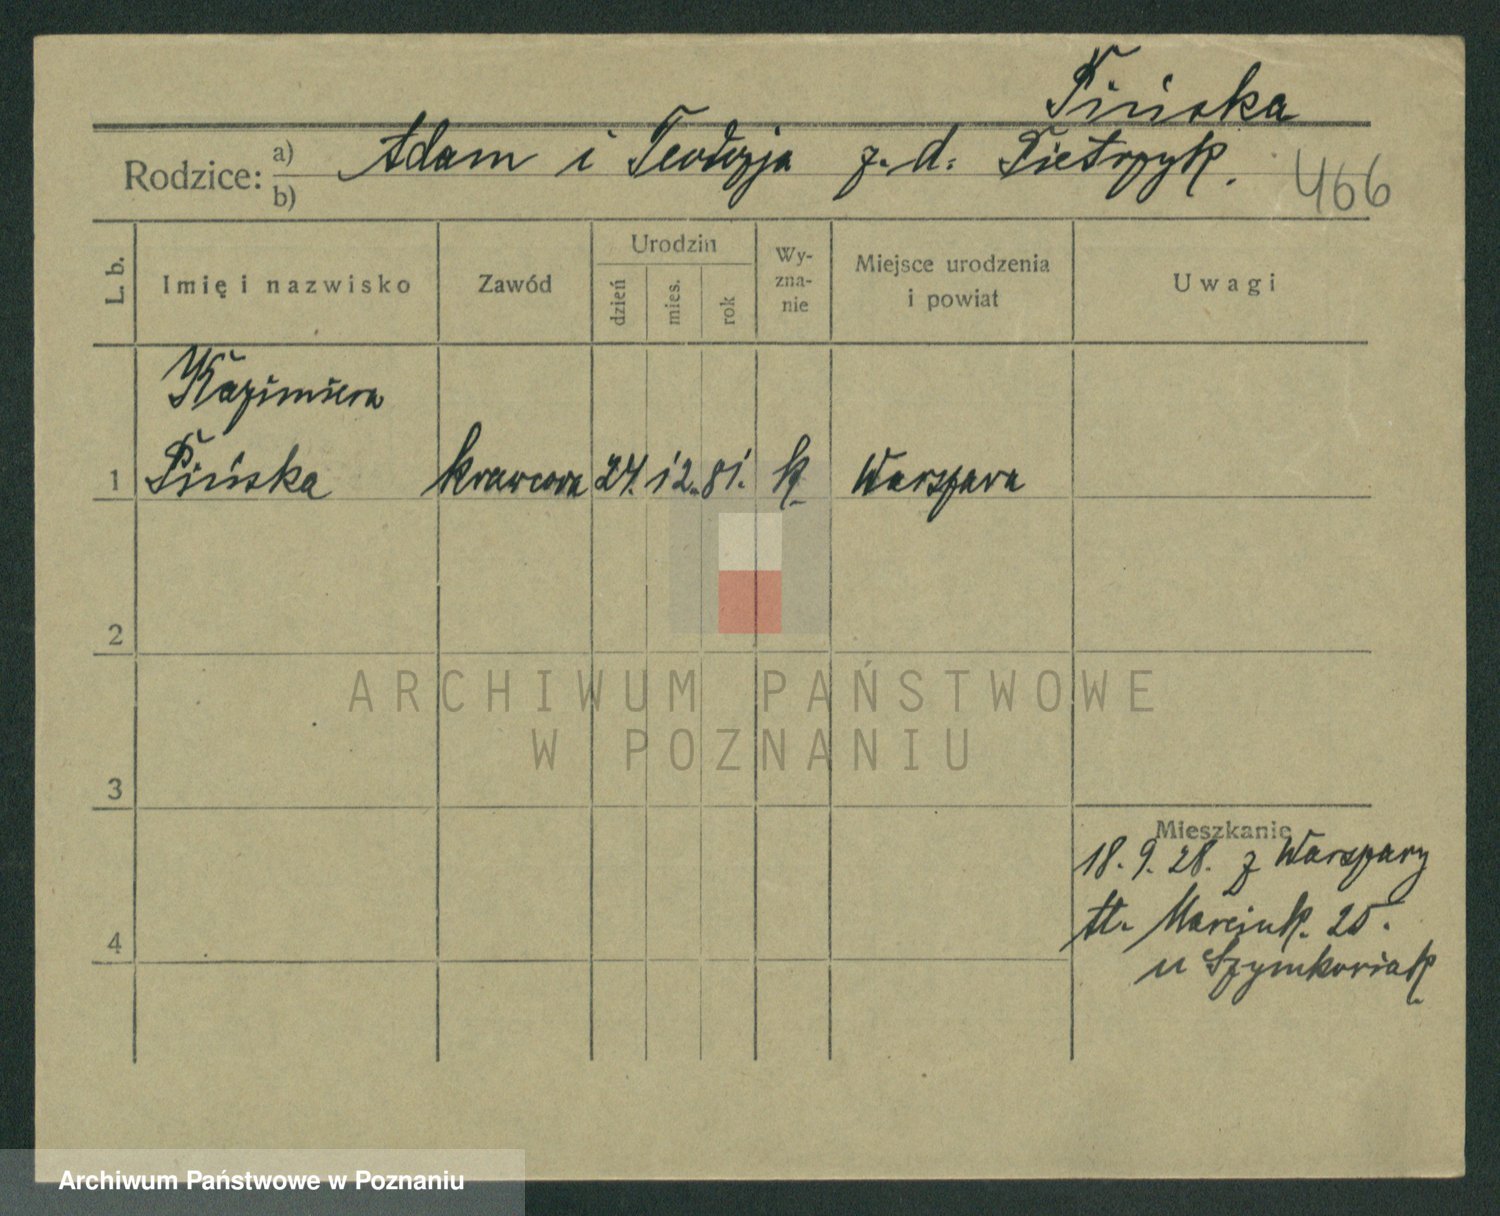 Pińska
Rodzice: a) b) Adam i Teodozja z. d. Pietrzyk.
466
L. b.
Imię i nazwisko
Zawód
Urodzin
dzień
mies.
rok
Wy-
zna-
nie
Miejsce urodzenia
i powiat
Uwagi
Kazimiera
1 Pińska krawcowa 24. 12. 81. k. Warszawa
2
ARCHIWUM PAŃSTWOWE
W POZNANIU
3
Mieszkanie
18. 9. 28. z Warszawy
Marcink. 25.
4
u Szymkowiak
Archiwum Państwowe w Poznaniu